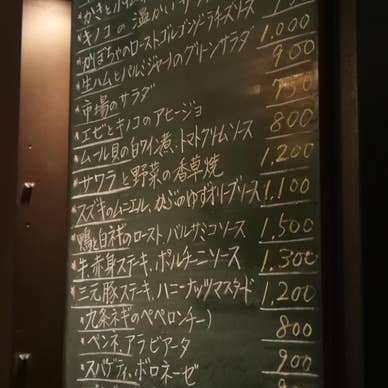 キノコの温かいサ
かぼちゃのローストゴルゴンゾーラチーズソース 1,000
生ハムとパルミジャーノのグリーンサラダ 900
市場のサラダ 750
エビとキノコのアヒージョ 800
ムール貝の白ワイン煮、トマトクリームソース 1,200
サワラと野菜の香草焼 1,100
スズキのムニエル、かぶのゆずオリーブソース 1,500
鴨と白ネギのロースト、バルサミコソース 1,300
牛赤身ステーキ、ポルチーニソース 1,200
三元豚ステーキ、ハニーナッツマスタード 800
九条ネギのペペロンチーノ 900
ペンネ、アラビアータ
スパゲティ、ボロネーゼ